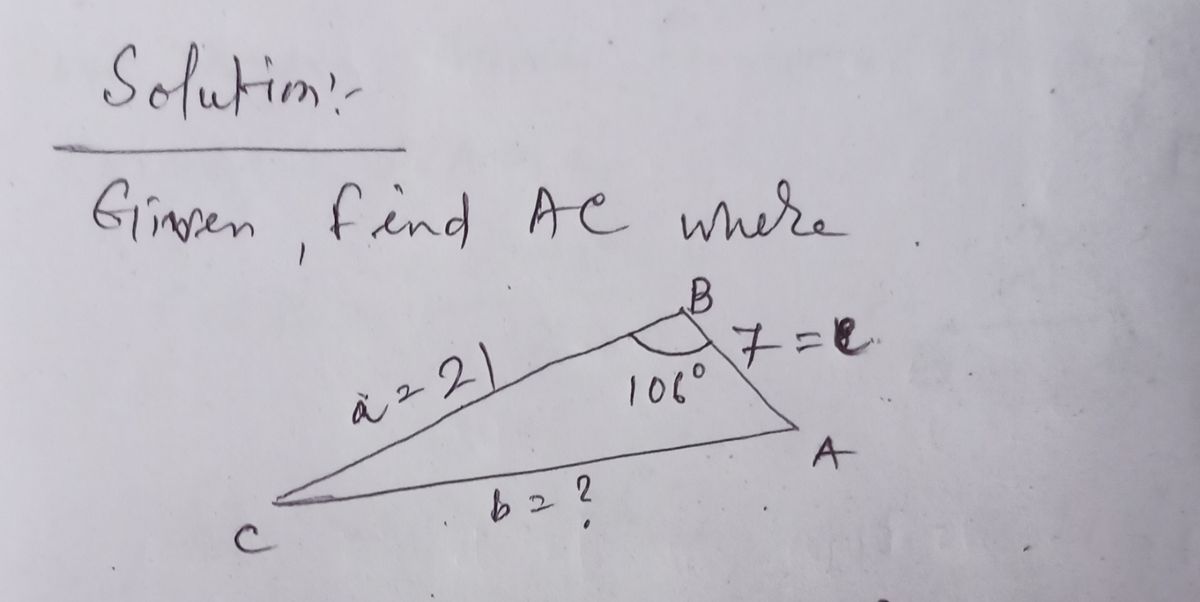 Solution:-
Given, find AC where
B
a = 21
7 = c
106°
A
b = ?
C